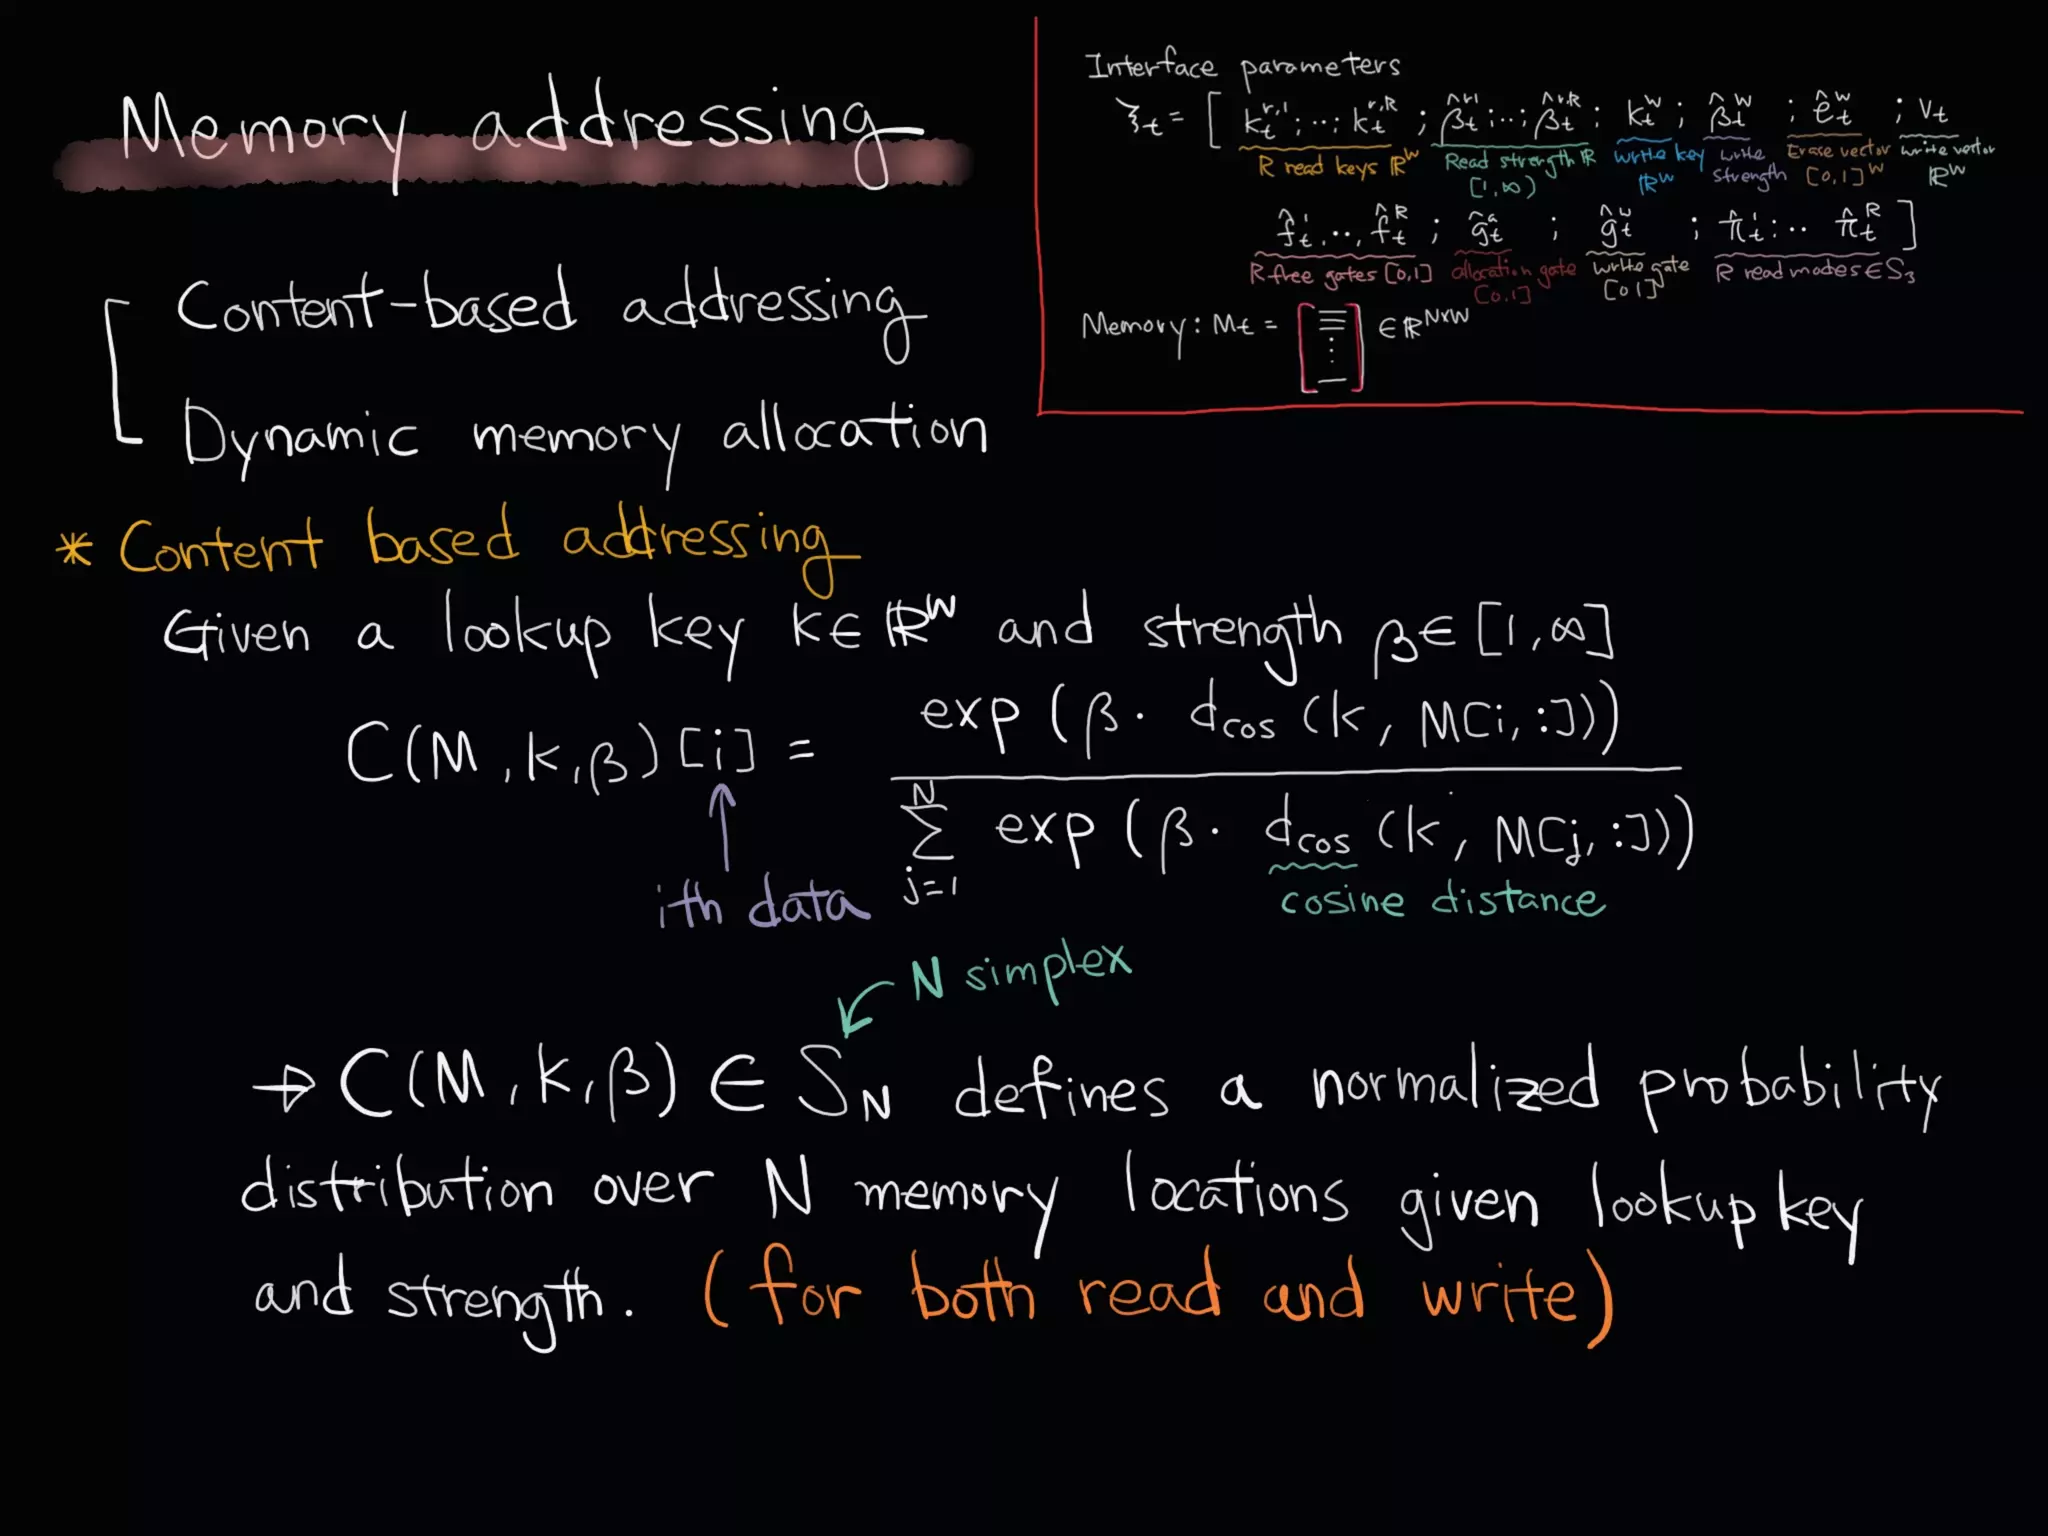 Memory addressing
Content-based addressing
Dynamic memory allocation
Interface parameters
ξt = [ kt^r,1 ; ‥ ; kt^r,R ; β̂t^r,1 ; ‥ ; β̂t^r,R ; kt^w ; β̂t^w ; êt^w ; vt
R read keys ℝ^W Read strength ℝ [1,∞) write key ℝ^W write strength Erase vector [0,1]^W write vector ℝ^W
f̂t^1, ‥, f̂t^R ; ĝt^a ; ĝt^w ; π̂t^1 : ‥ π̂t^R ]
R free gates [0,1] allocation gate [0,1] write gate [0 1] R read modes ∈ S3
Memory : Mt = [ ] ∈ ℝ^N×W
* Content based addressing
Given a lookup key k ∈ ℝ^W and strength β ∈ [1, ∞]
C(M, k, β)[i] = exp(β · dcos(k, M[i, :])) / Σ_{j=1}^{N} exp(β · dcos(k, M[j, :]))
ith data
cosine distance
N simplex
→ C(M, k, β) ∈ SN defines a normalized probability
distribution over N memory locations given lookup key
and strength. (for both read and write)